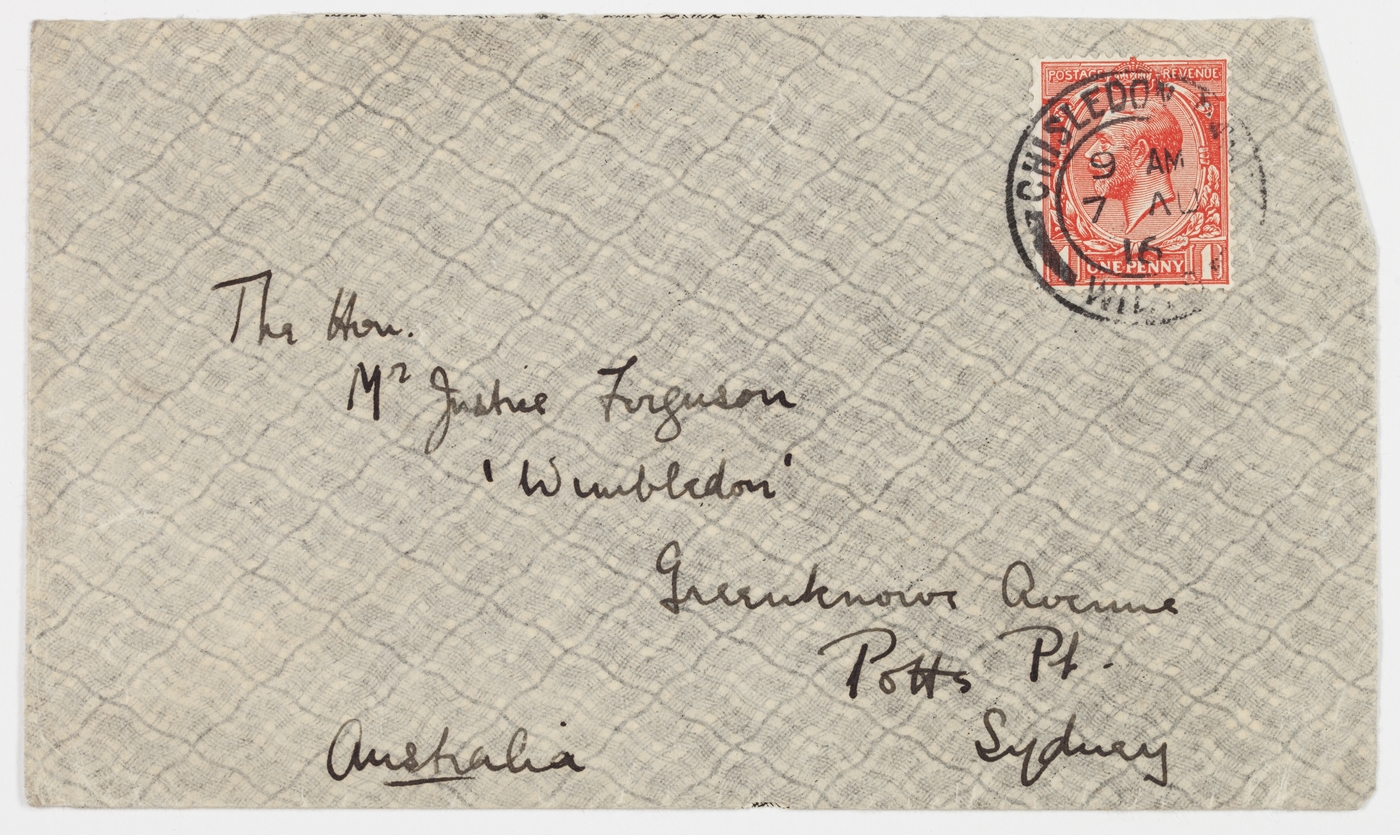 POSTAGE REVENUE
CHISLEDON
9 AM
7 AU
16
1 ONE PENNY 1
The Hon.
Mr Justice Ferguson
'Wimbledon'
Greenknowe Avenue
Potts Pt.
Sydney
Australia